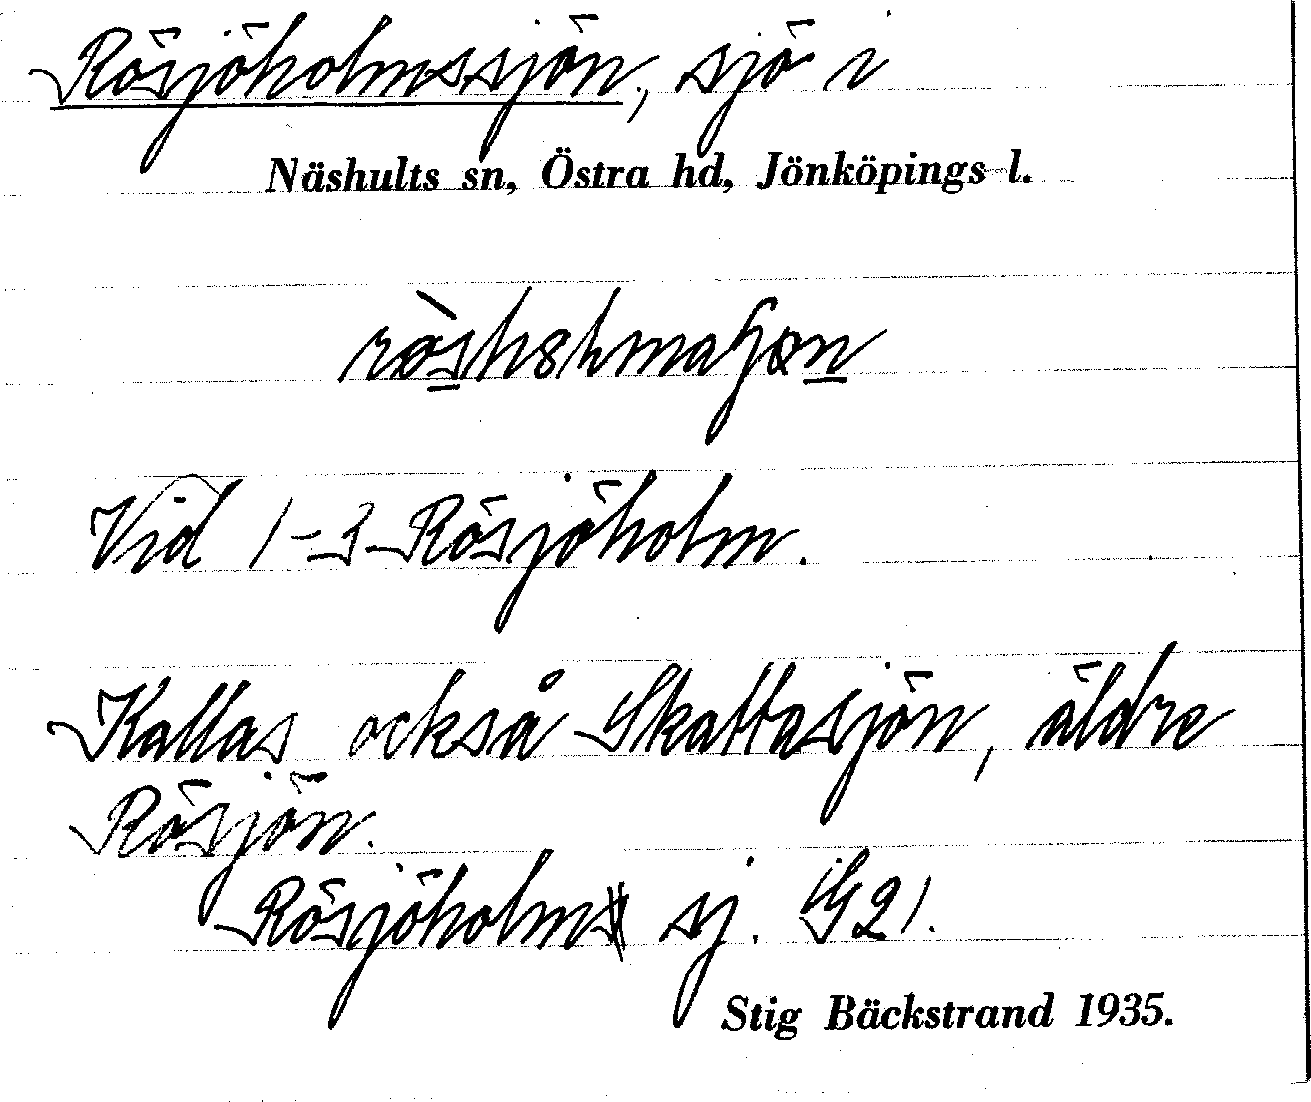 Rösjöholmssjön, sjö i
Näshults sn, Östra hd, Jönköpings l.
Vid 1-3 Rösjöholm.
Kallas också Skattasjön, äldre
Rösjön.
Rösjöholms sj. G21.
Stig Bäckstrand 1935.